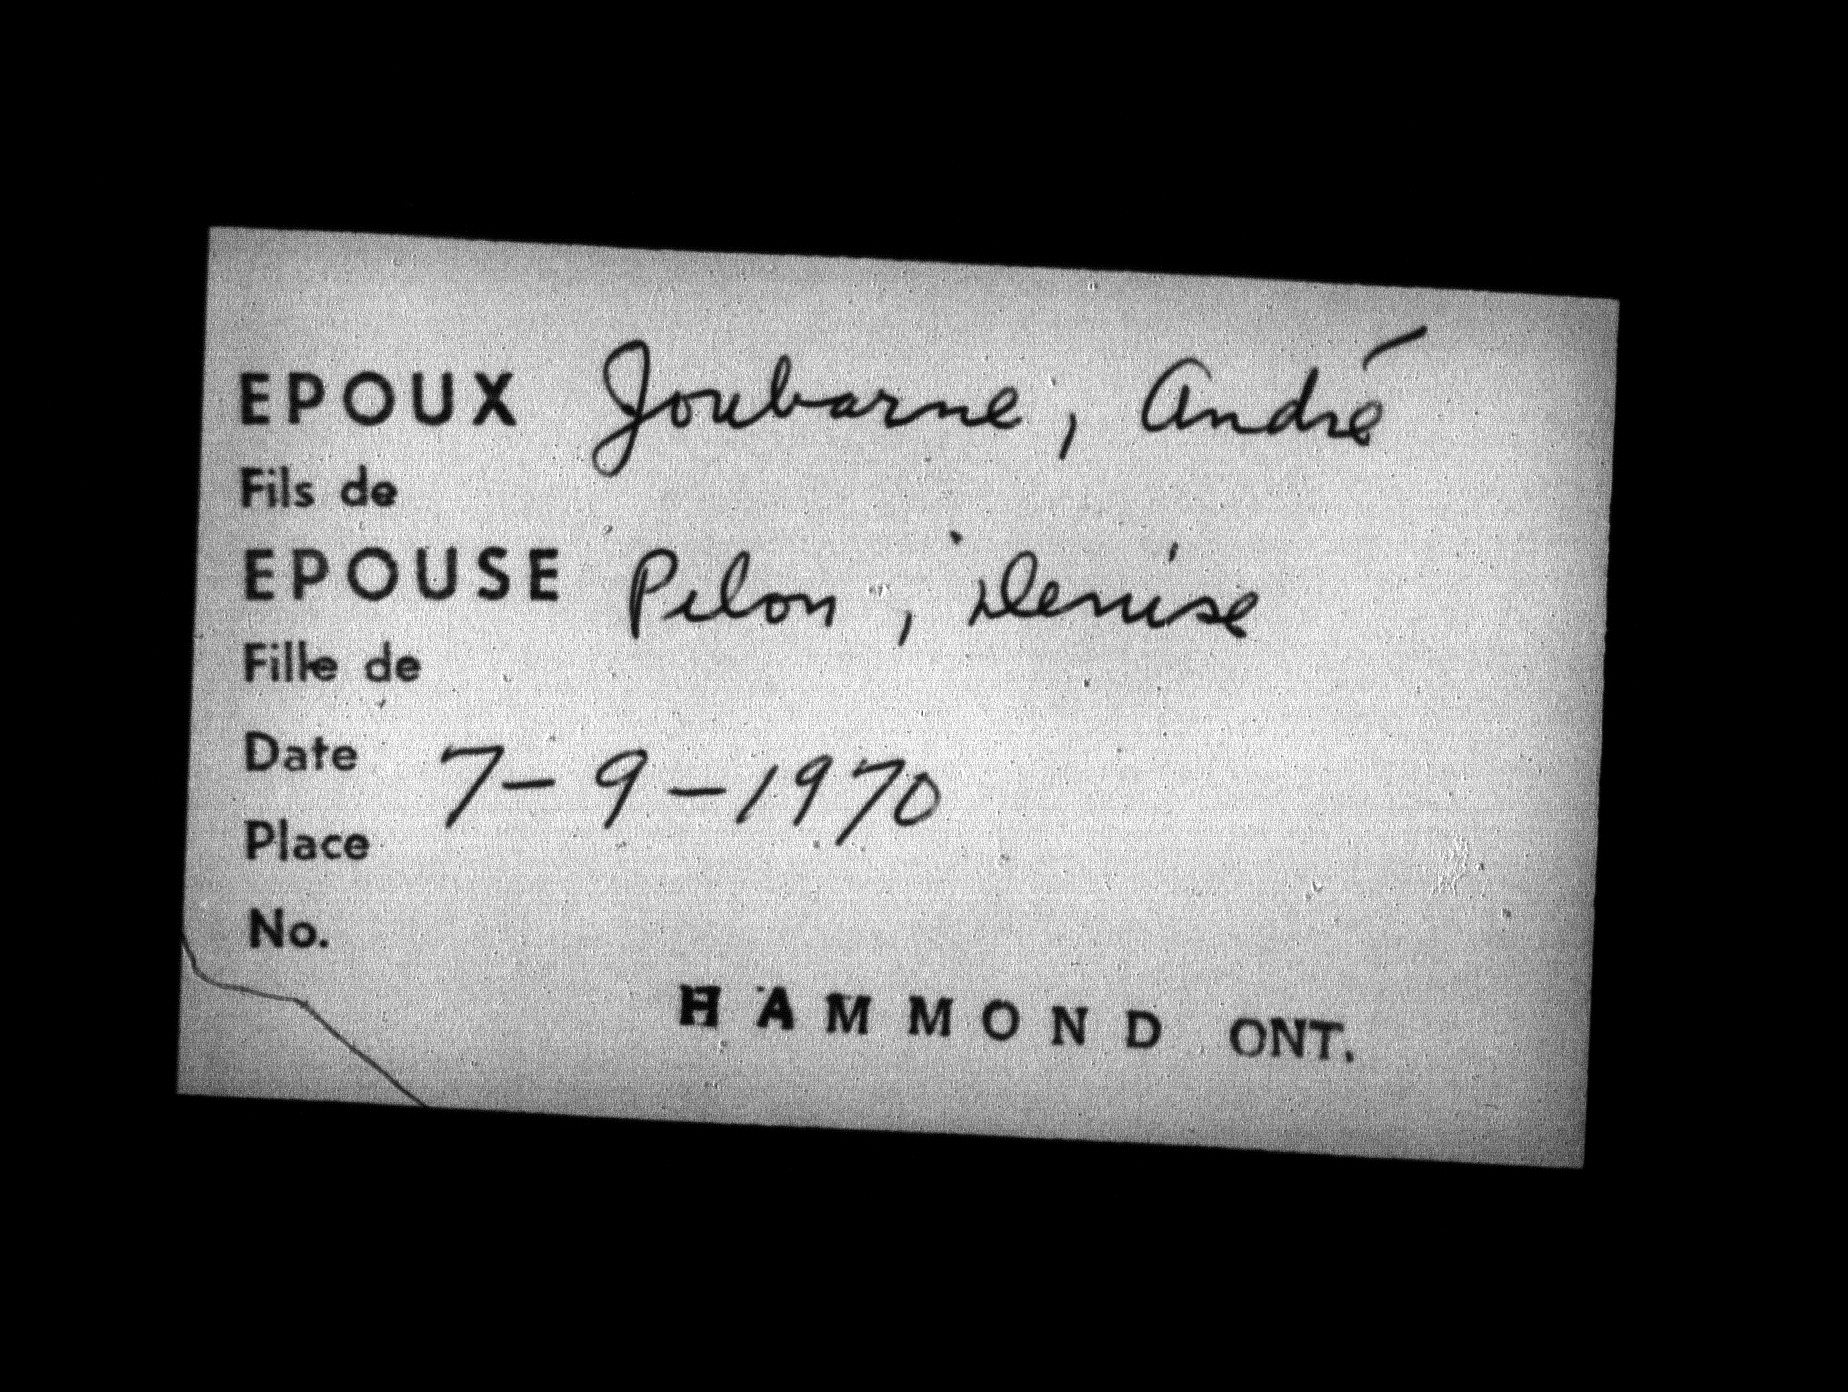 EPOUX Joubarne, André
Fils de
EPOUSE Pilon, Denise
Fille de
Date 7-9-1970
Place
No.
HAMMOND ONT.